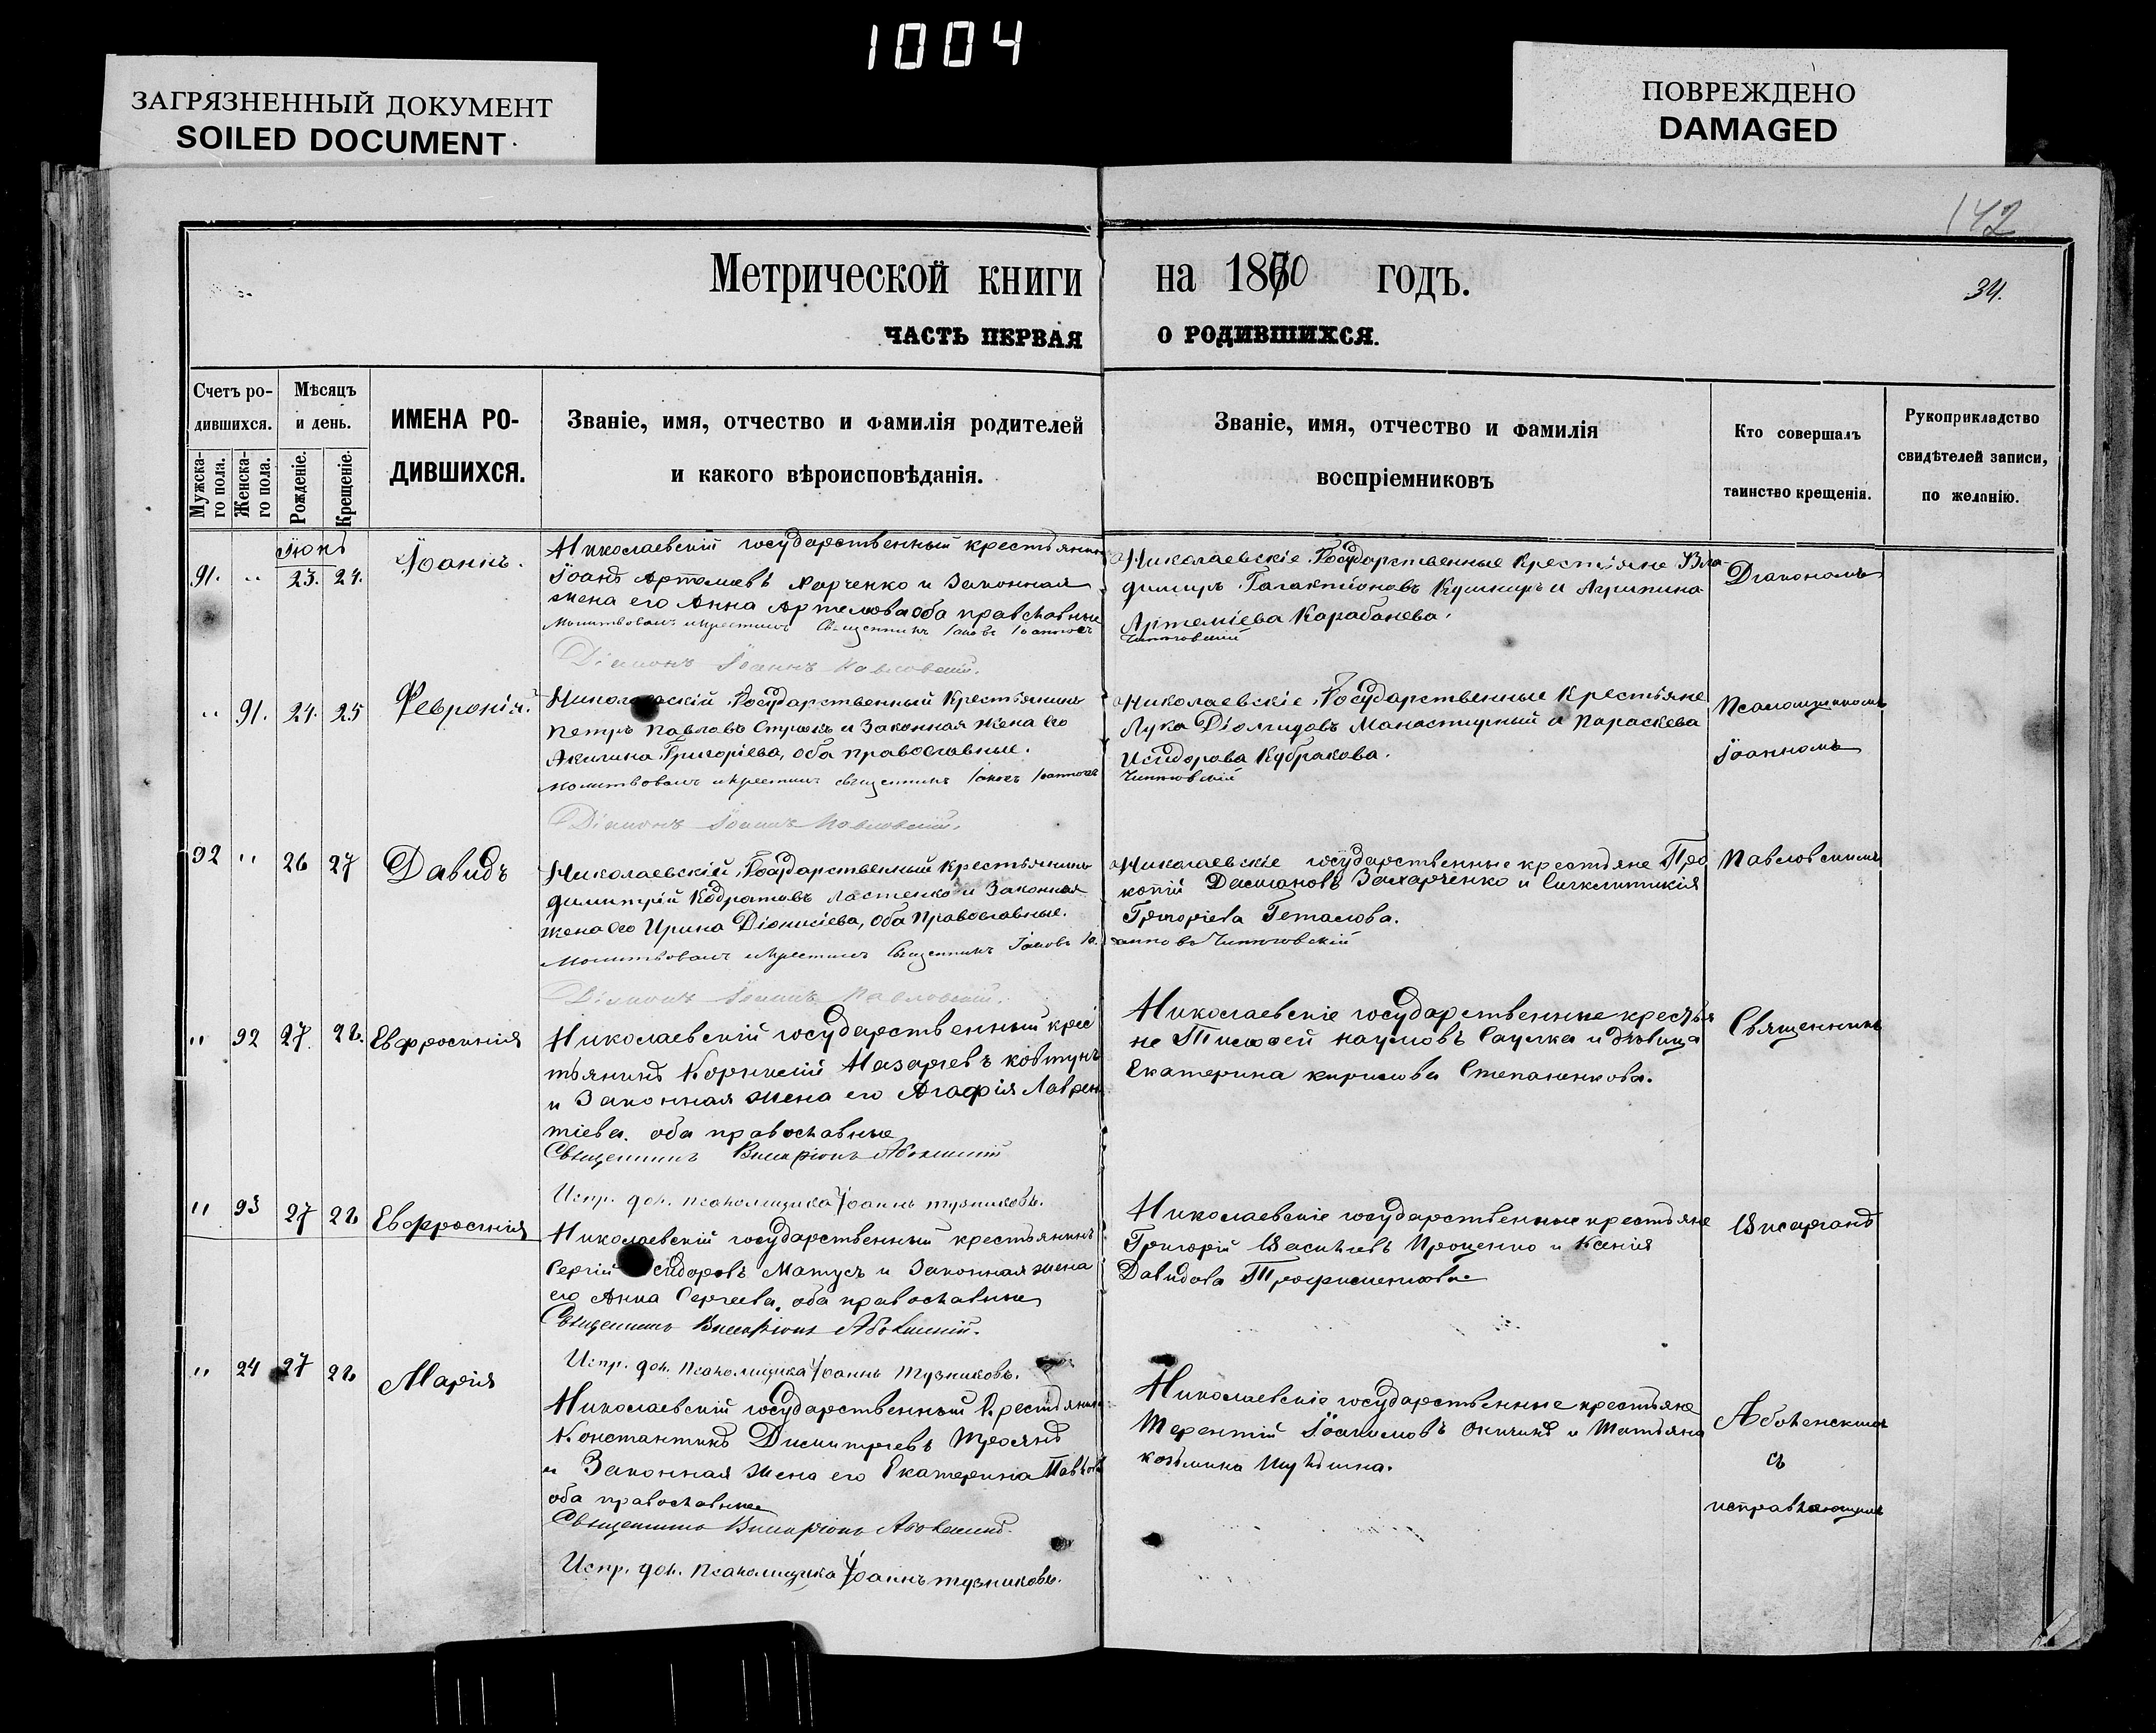 1004
ЗАГРЯЗНЕННЫЙ ДОКУМЕНТ
SOILED DOCUMENT
ПОВРЕЖДЕНО
DAMAGED
142
34.
Метрической книги на 1870 годъ.
ЧАСТЬ ПЕРВАЯ О РОДИВШИХСЯ.
Счетъ ро-
дившихся.
Мужска-
го пола.
Женска-
го пола.
Мѣсяцъ
и день.
Рожденіе.
Крещеніе.
ИМЕНА РО-
ДИВШИХСЯ.
Званіе, имя, отчество и фамилія родителей
и какого вѣроисповѣданія.
Званіе, имя, отчество и фамилія
воспріемниковъ
Кто совершалъ
таинство крещенія.
Рукоприкладство
свидѣтелей записи,
по желанію.
Іюнь
91. " 23. 24. Іоаннъ.
Николаевскій государственный крестьянинъ
Іоанъ Артемьевъ Харченко и Законная
жена его Анна Артемова оба православные
Молитвовалъ и крестилъ Священникъ Іаковъ Іоанновъ
Діаконъ Іоаннъ Павловскій.
Николаевскіе Государственные Крестьяне Вла
димиръ Галактіоновъ Кушниръ и Агрипина
Артеміева Карабанева.
Діакономъ
" 91. 24. 25 Февронія.
Николаевскій Государственный Крестьянинъ
Петръ Павловъ и Законная жена его
Акилина Григоріева, оба православные.
Молитвовалъ и крестилъ священникъ Іаковъ Іоанновъ
Діаконъ Іоаннъ Павловскій.
Николаевскіе Государственные Крестьяне
Лука Діомидовъ Манастырный и Параскева
Исидорова Кубракова.
Псаломщикомъ
Іоанномъ
92 " 26 27 Давидъ
Николаевскій Государственный Крестьянинъ
Димитрій Кодратовъ Ластенко и Законная
жена его Ирина Діонисіева, оба Православные.
Молитвовалъ и крестилъ Священникъ Іаковъ Іо
Діаконъ Іоаннъ Павловскій.
Николаевскіе государственные крестьяне Про
копій Даміановъ Захарченко и Сигклитикія
Григоріева Геталова.
анновъ
Павловскимъ
" 92 27. 28. Евфросинія
Николаевскій государственный крес
тьянинъ Корнилій Назарьевъ Ковтунъ
и Законная жена его Агафія Лаврен
тіева. оба православные
Священникъ Виларіонъ
Испр. дол. псаломщика Іоаннъ Тузниковъ.
Николаевскіе государственные крестья
не Тимофей Наумовъ Саулка и дѣвица
Екатерина Кирилова Степаненкова.
Священникъ
" 93 27 28 Евфросинія
Николаевскій государственный крестьянинъ
Сергій Исидоровъ Матусъ и Законная жена
его Анна Сергеева, оба православные
Священникъ Виларіонъ
Испр. дол. псаломщика Іоаннъ Тузниковъ.
Николаевскіе государственные крестьяне
Григорій Васильевъ Проценко и Ксенія
Давидова Трофименкова.
" 94 27 28 Марія
Николаевскій государственный Крестьянинъ
Константинъ Димитріевъ Троянъ
и Законная жена его Екатерина Павлова
оба православные
Священникъ Виларіонъ
Испр. дол. псаломщика Іоаннъ Тузниковъ.
Николаевскіе государственные крестьяне
Терентій Іоакимовъ и Татьяна
Козьмина
съ
исправляющимъ